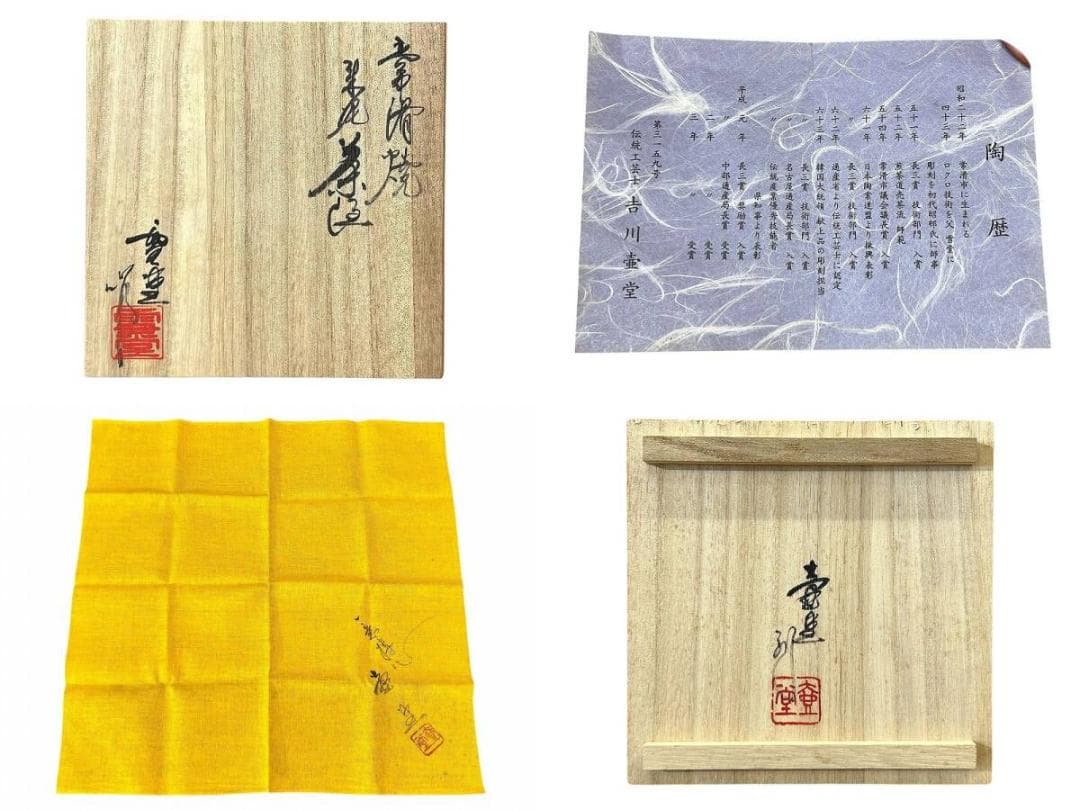 常滑焼
朱泥
雪堂
雪堂
陶歴
昭和二十二年 常滑市に生まれる
四十三年 ロクロ技術を父 雪堂に
彫刻を初代昭邨氏に師事
五十一年 長三賞 技術部門 入賞
五十二年 煎茶道売茶流 師範
五十四年 常滑市議会議長賞 入賞
六十一年 日本陶業連盟より振興表彰
〃 長三賞 技術部門 入賞
六十二年 通産省より伝統工芸士に認定
六十三年 韓国大統領 献上品の彫刻担当
〃 長三賞 技術部門 入賞
〃 名古屋通産局長賞 入賞
〃 伝統産業優秀技能者
県知事より表彰
平成 元年 長三賞 奨励賞 入賞
二年 中部通産局長賞 受賞
三年 〃 受賞
第三一五九号
伝統工芸士 吉川壷堂
壷堂
刻
壷堂